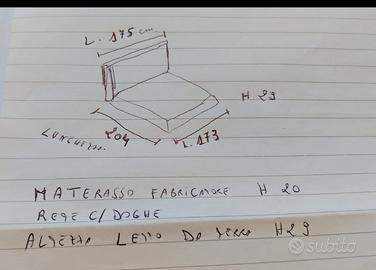 L. 175 cm.
H 29
LUNGHEZZA 204
L. 173
MATERASSO FABRICATORE H 20
RETE C/DOGHE
ALTEZZA LETTO DA TERRA H29
subito